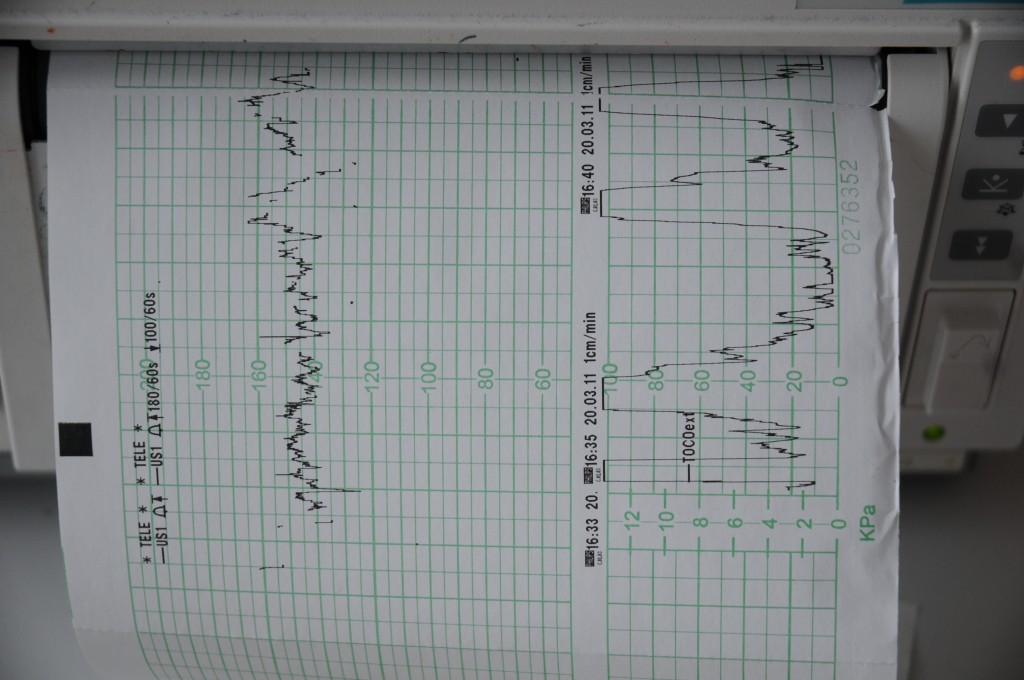 * TELE * * TELE *
US1 US1 180/60s 100/60s
200
180
160
140
120
100
80
60
16:33 20. 16:35 20.03.11 1cm/min 16:40 20.03.11 1cm/min
100
80
60
40
20
0
TOCOext
12
10
8
6
4
2
0
KPa
0276352